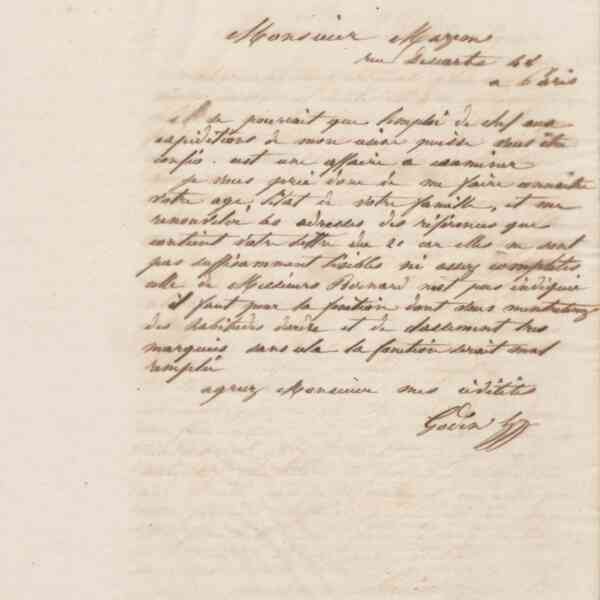 Monsieur Mazon
rue Descartes 48
a Paris
il se pourrait que l'emploi de chef aux
expéditions de mon usine puisse vous être
confié. c'est une affaire a examiner
je vous prie donc de me faire connaître
votre age, l'état de votre famille, et me
renouveler les adresses des références que
contient votre lettre du 20 car elles ne sont
pas suffisamment lisibles ni assez completes
celle de Messieurs Bernard n'est pas indiquée
il faut pour la fonction dont vous m'entretenez
des habitudes d'ordre et de classement très
marquées sans cela la fonction serait mal
remplie
agréez Monsieur mes civilités
Godin